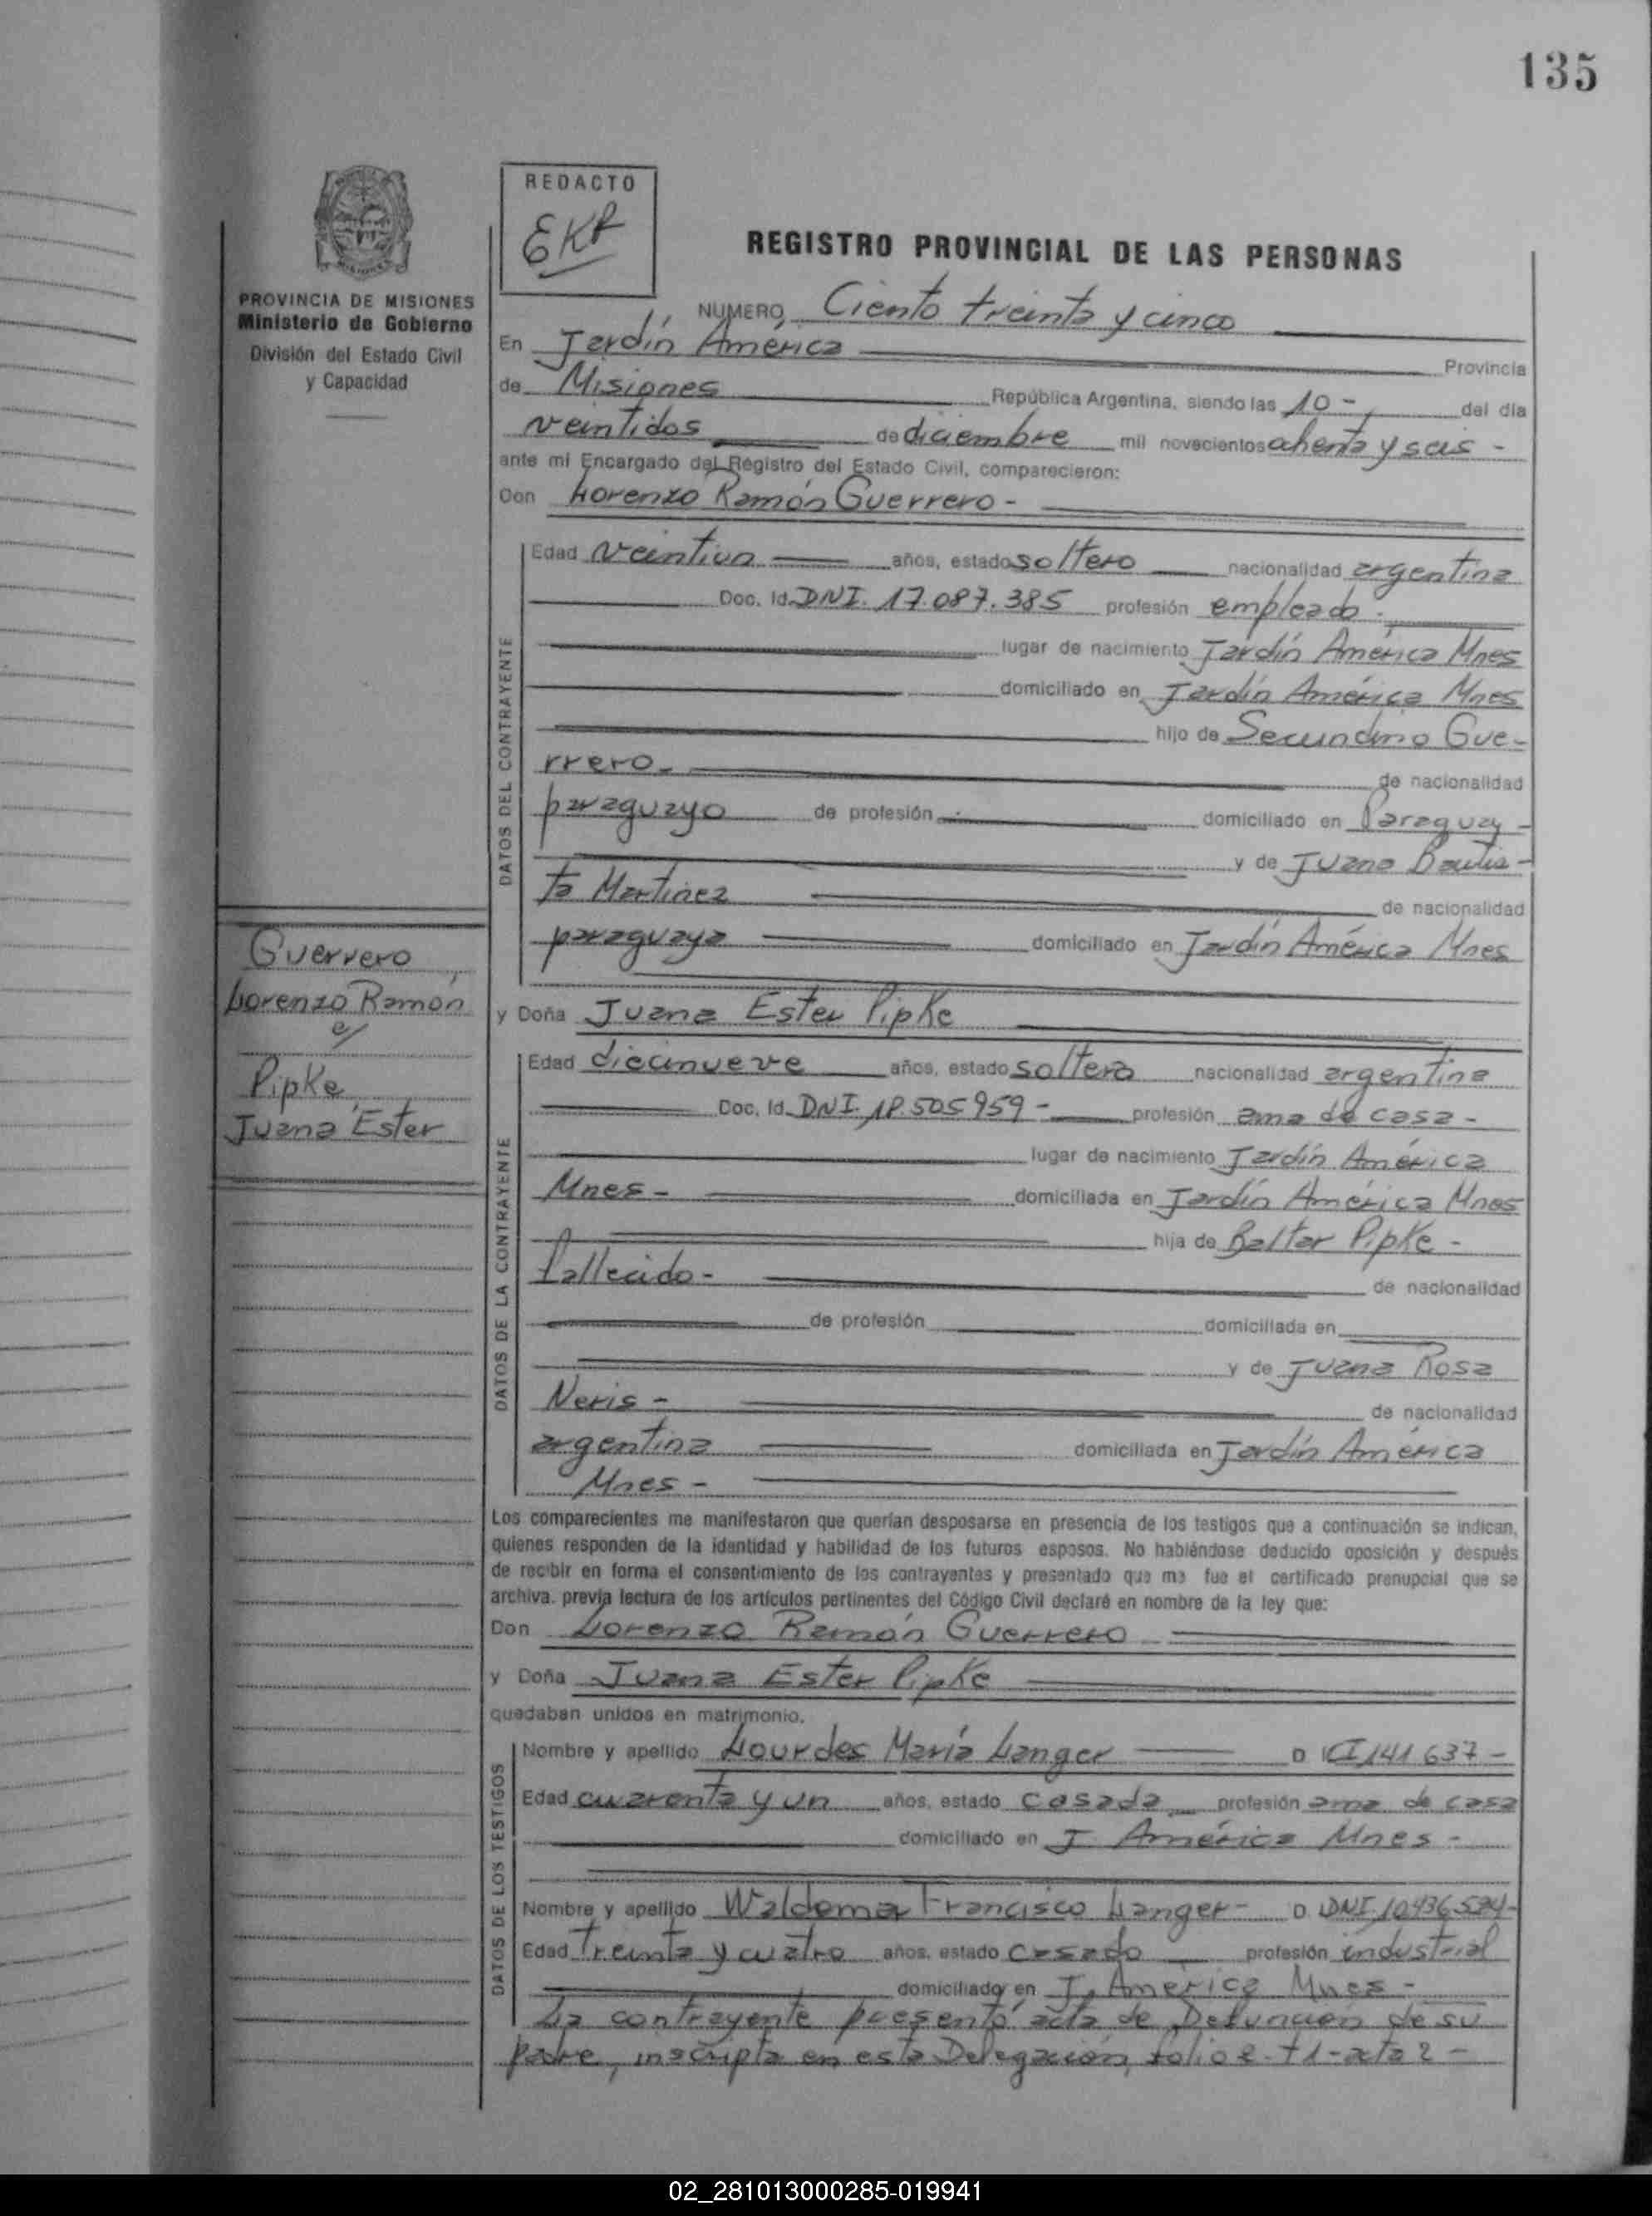 135
REDACTO
EKR
REGISTRO PROVINCIAL DE LAS PERSONAS
PROVINCIA DE MISIONES
Ministerio de Gobierno
División del Estado Civil
y Capacidad
NUMERO Ciento treinta y cinco
En Jardín América Provincia
de Misiones República Argentina, siendo las 10 - del día
veintidos de diciembre mil novecientos ochenta y seis -
ante mi Encargado del Registro del Estado Civil, comparecieron:
Don Lorenzo Ramón Guerrero -
DATOS DEL CONTRAYENTE
Edad veintiun años, estado soltero nacionalidad argentina
Doc. Id. DNI. 17.087.385 profesión empleado.
lugar de nacimiento Jardín América Mnes
domiciliado en Jardín América Mnes
hijo de Secundino Gue-
rrero - de nacionalidad
paraguayo de profesión domiciliado en Paraguay -
y de Juana Bautis-
ta Martinez de nacionalidad
paraguaya domiciliado en Jardín América Mnes
Guerrero
Lorenzo Ramón
c/
Pipke
Juana Ester
y Doña Juana Ester Pipke
DATOS DE LA CONTRAYENTE
Edad diecinueve años, estado soltera nacionalidad argentina
Doc. Id. DNI. 18.505959 - profesión ama de casa -
lugar de nacimiento Jardín América
Mnes - domiciliada en Jardín América Mnes
hija de Baltar Pipke -
fallecido - de nacionalidad
de profesión domiciliada en
y de Juana Rosa
Neris - de nacionalidad
argentina domiciliada en Jardín América
Mnes -
Los comparecientes me manifestaron que querían desposarse en presencia de los testigos que a continuación se indican,
quienes responden de la identidad y habilidad de los futuros esposos. No habiéndose deducido oposición y después
de recibir en forma el consentimiento de los contrayentes y presentado que me fue el certificado prenupcial que se
archiva. previa lectura de los artículos pertinentes del Código Civil declaré en nombre de la ley que:
Don Lorenzo Ramón Guerrero
y Doña Juana Ester Pipke
quedaban unidos en matrimonio.
DATOS DE LOS TESTIGOS
Nombre y apellido Lourdes María Langer D I CI 141 637 -
Edad cuarenta y un años, estado casada profesión ama de casa
domiciliado en J América Mnes -
Nombre y apellido Waldemar Francisco Langer - D. DNI 10436524 -
Edad treinta y cuatro años, estado casado profesión industrial
domiciliado en J. América Mnes -
La contrayente presentó acta de Defunción de su
padre, inscripta en esta Delegación, folio 2 - t 1 - acta 2 -
02_281013000285-019941